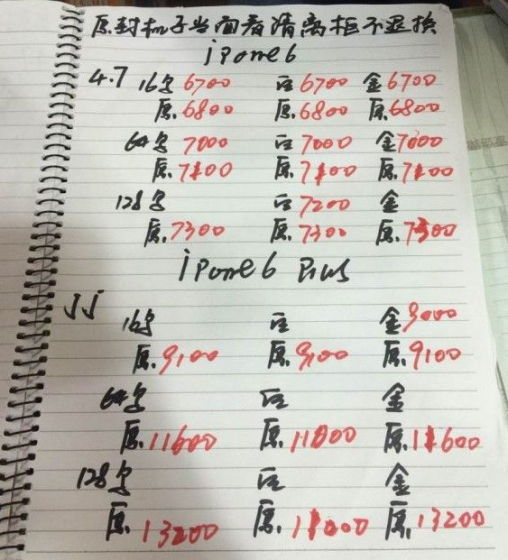 原封机子当面看清离柜不退换
iPone6
4.7 16G 6700 白 6700 金 6700
原.6800 原.6800 原.6800
64G 7000 白 7000 金 7000
原.7100 原.7100 原.7100
128G 白 7200 金
原.7300 原.7300 原.7300
iPone6 Plus
5.5
16G 白 金 9000
原.9100 原.9100 原.9100
64G 白 金
原.11600 原.11000 原.11600
128G 白 金
原.13200 原. 原.13200